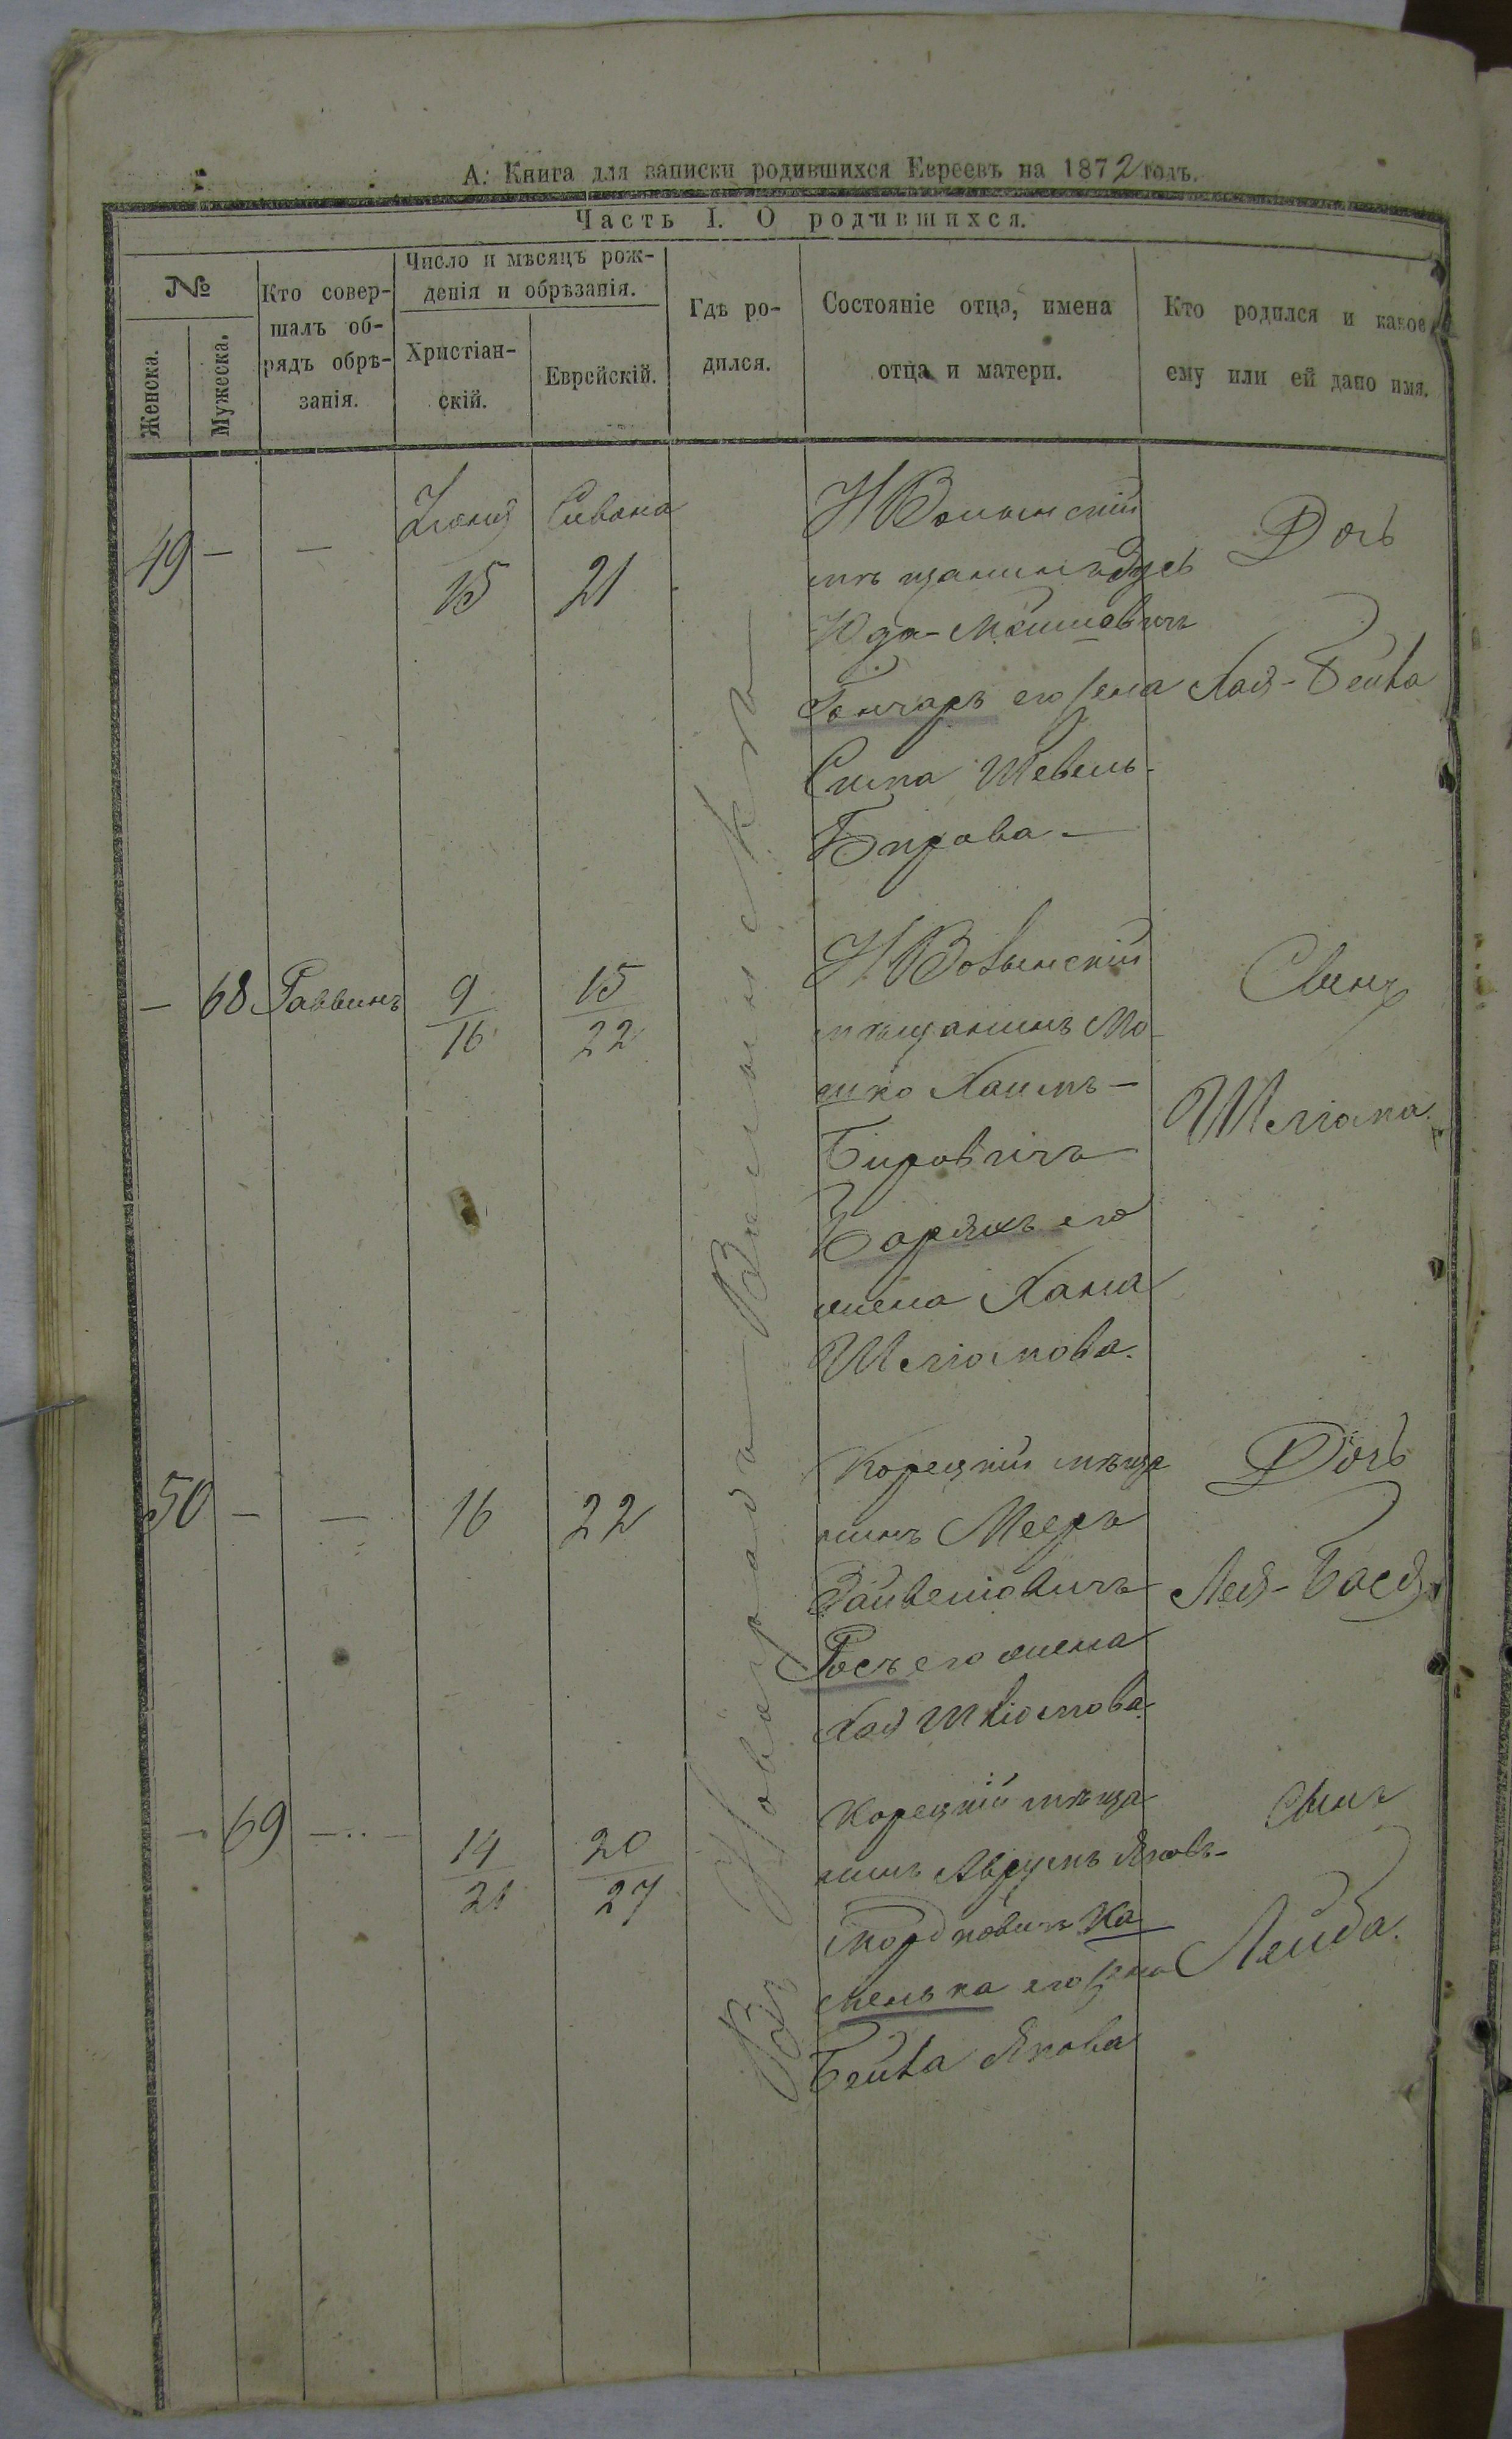 А. Книга для записки родившихся Евреевъ на 1872 годъ.
Часть I. О родившихся.
№
Женска.
Мужеска.
Кто совер-
шалъ об-
рядъ обрѣ-
занія.
Число и мѣсяцъ рож-
денія и обрѣзанія.
Христіан-
скій.
Еврейскій.
Гдѣ ро-
дился.
Состояніе отца, имена
отца и матери.
Кто родился и какое
ему или ей дано имя.
Въ Новоградъ-Волынскѣ
49 — —
Іюня
15
Сивана
21
НВолынскій
мѣщанинъ
Юда-Мошковичъ
Гончаръ его жена
Сипа Шевель-
Бирова —
Дочь
Хая-Бейла
— 68 Раввинъ
9
16
15
22
НВолынскій
мѣщанинъ Мо
шко Хаимъ —
Бировичъ
его
жена Хана
Шліомова.
Сынъ
Шліома
50 — —
16
22
Корецкій мѣща
нинъ Мееръ
Зайвеліовичъ
Росъ его жена
Хая Шліомова
Дочь
Лея-Бася
— 69 —
14
21
20
27
Корецкій мѣща
нинъ Аврумъ Яковъ-
Мордковичъ Ка
менька его жена
Бейла Якова
Сынъ
Лейба.